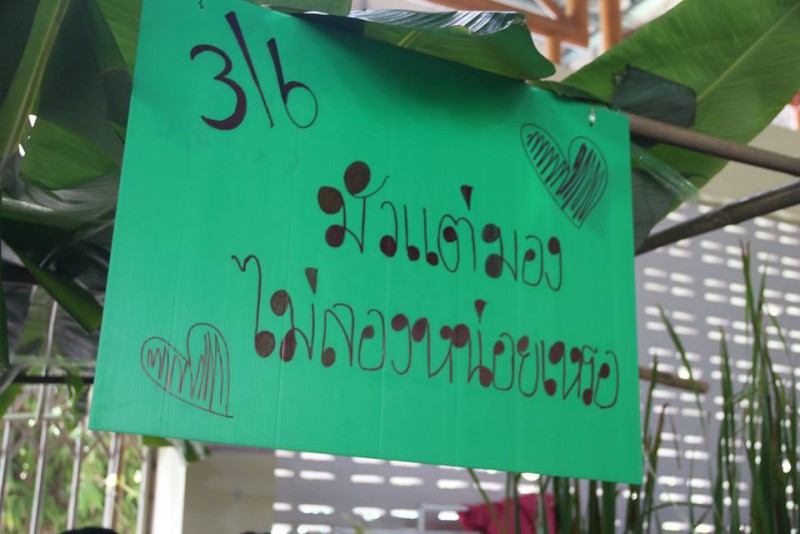 3/6
มัวแต่มอง
ไม่ลองหน่อยเหรอ